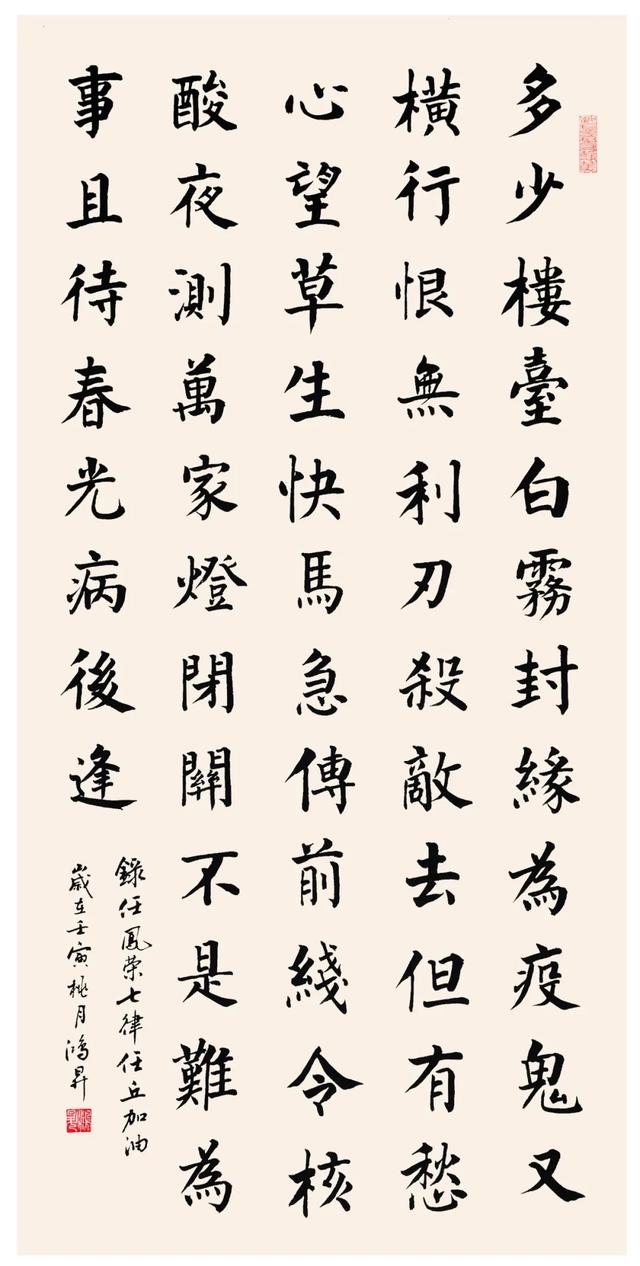 多少樓臺白霧封緣為疫鬼又
橫行恨無利刃殺敵去但有愁
心望草生快馬急傳前綫令核
酸夜測萬家燈閉關不是難為
事且待春光病後逢
錄任鳳榮七律任丘加油
歲在壬寅桃月鴻昇